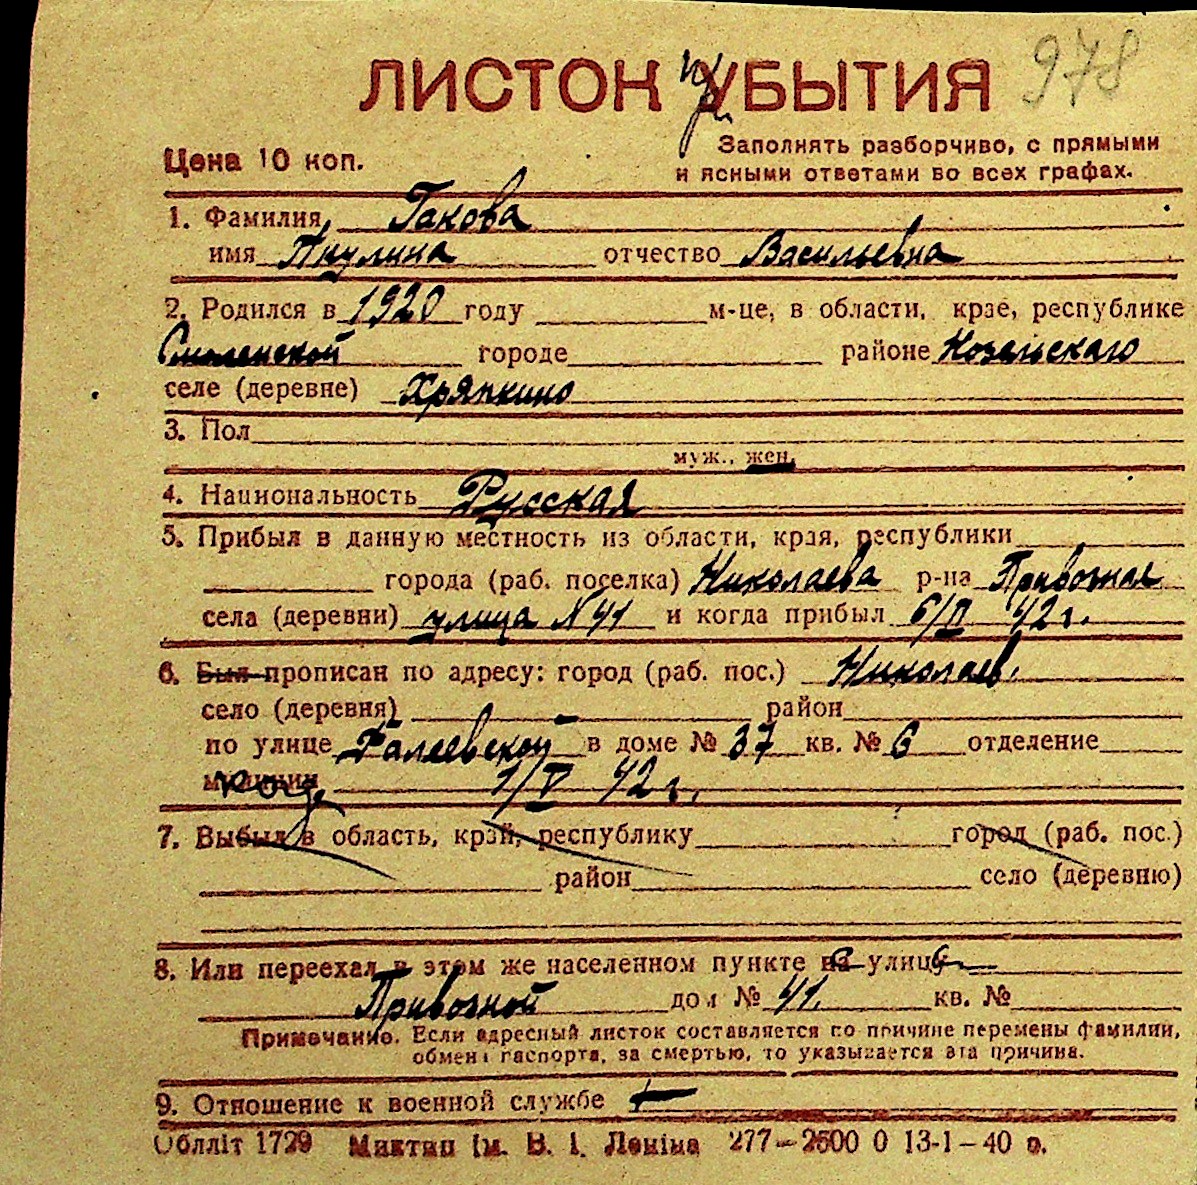 978
ЛИСТОК при УБЫТИЯ
Цена 10 коп.
Заполнять разборчиво, с прямыми
и ясными ответами во всех графах.
1. Фамилия Гакова
имя Акулина отчество Васильевна
2. Родился в 1920 году м-це, в области, крае, республике
Смоленской городе районе Козельскаго
селе (деревне) Хряпкино
3. Пол
муж., жен.
4. Национальность Русская
5. Прибыл в данную местность из области, края, республики
города (раб. поселка) Николаева р-на Привозная
села (деревни) улица N 41 и когда прибыл 42 г.
6. Был прописан по адресу: город (раб. пос.) Николаев.
село (деревня) район
по улице Фалеевской в доме № 37 кв. № 6 отделение
милиции 1/V 42 г.
7. Выбыл в область, край, республику город (раб. пос.)
район село (деревню)
8. Или переехал в этом же населенном пункте на улицу
Привозной дом № 41. кв. №
Примечание. Если адресный листок составляется по причине перемены фамилии,
обмена паспорта, за смертью, то указывается эта причина.
9. Отношение к военной службе —
Обліт 1729 Миктип ім. В. І. Леніна 277—2500 0 13-1—40 р.